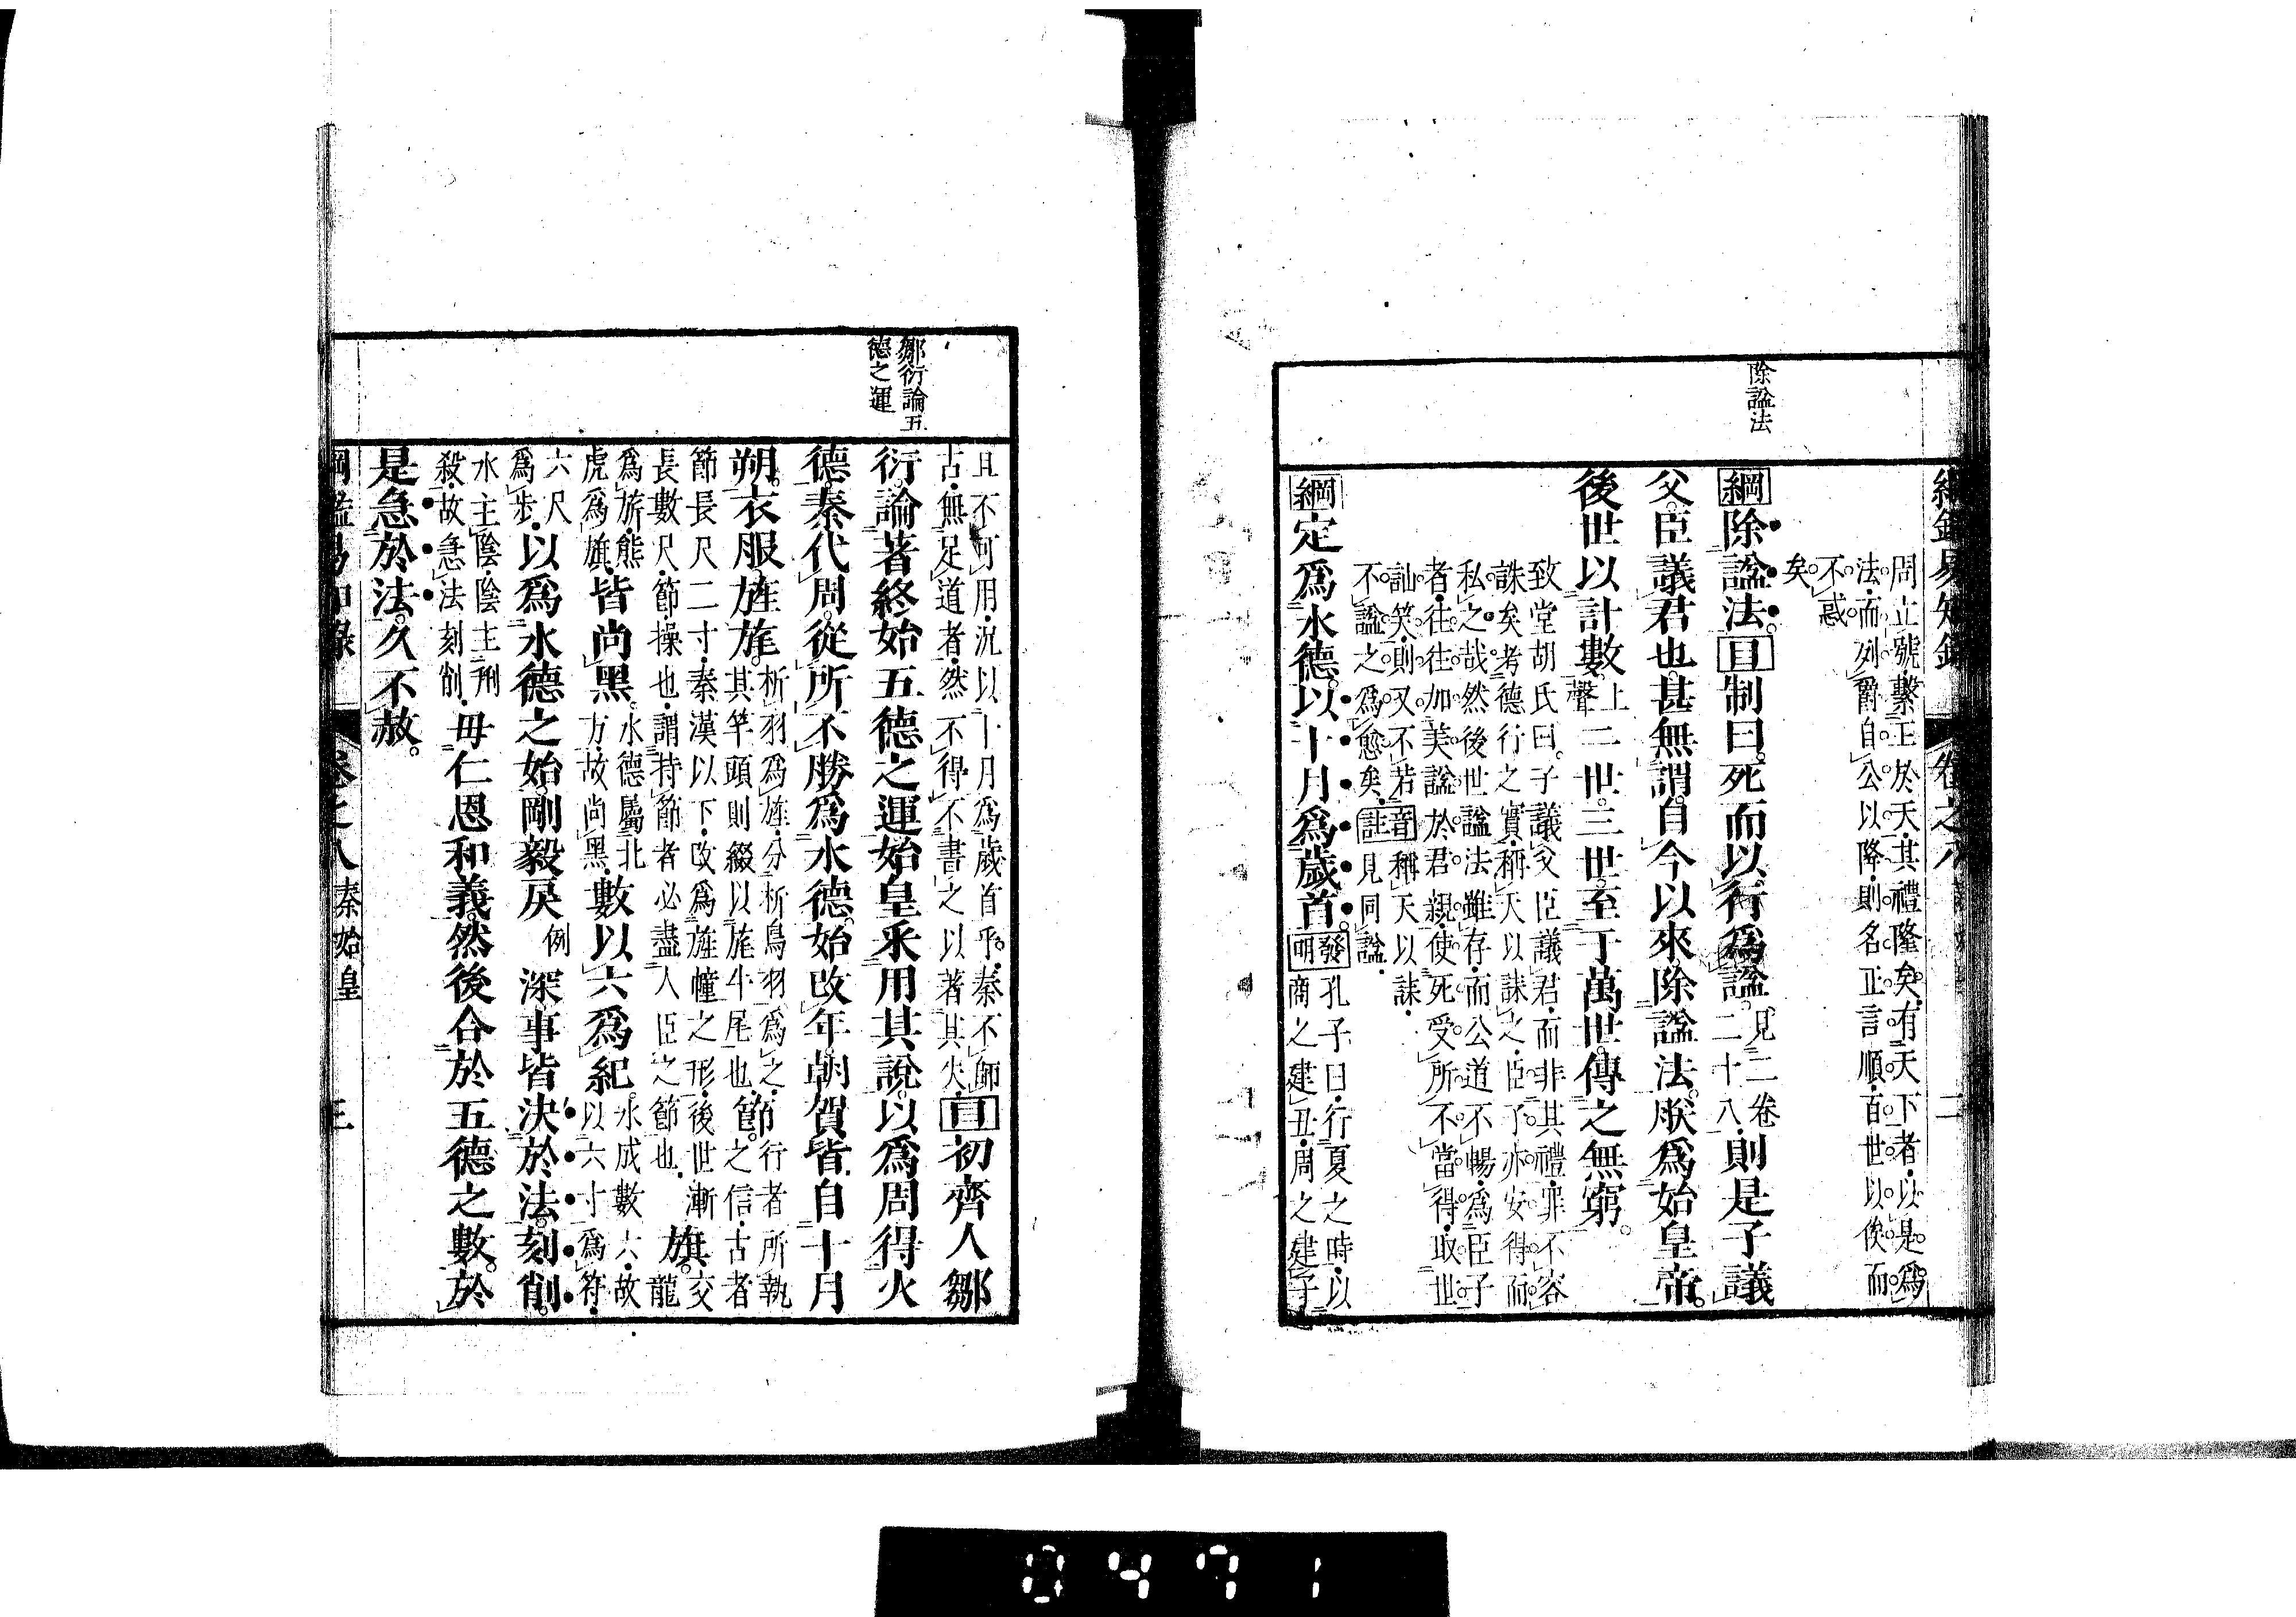 綱鑑易知錄 卷之八 二
除謚法
周止號繫王於天其禮隆矣有天下者以是爲
法而列爵自公以降則名正言順百世以俟而
不惑
矣
綱除謚法目制曰死而以行爲謚見二卷二十八則是子議
父臣議君也甚無謂自今以來除謚法朕爲始皇帝
後世以計數上聲二世三世至于萬世傳之無窮
致堂胡氏曰子議父臣議君而非其禮罪不容
誅矣考德行之實稱天以誄之臣子亦安得而
私之哉然後世謚法雖存而公道不暢爲臣子
者往往加美謚於君親使死受所不當得取世
訕笑則又不若音稱天以誄
不謚之爲愈矣註見同謚
綱定爲水德以十月爲歲首發明孔子曰行夏之時以商之建丑周之建子
鄒衍論五
德之運
且不可用況以十月爲歲首乎秦不師
古無足道者然不得不書之以著其失目初齊人鄒
衍論著終始五德之運始皇采用其說以爲周得火
德秦代周從所不勝爲水德始改年朝賀皆自十月
朔衣服旌旄析羽爲旌分析鳥羽爲之其竿頭則綴以旄牛尾也節行者所執之信古者
節長尺二寸秦漢以下改爲旌幢之形後世漸長數尺節操也謂持節者必盡人臣之節也旗交龍
爲旂熊虎爲旗皆尚黑水德屬北方故尚黑數以六爲紀水成數六故以六寸爲符
六尺爲步以爲水德之始剛毅戾例深事皆決於法刻削
水主陰陰主刑殺故急法刻削毋仁恩和義然後合於五德之數於
是急於法久不赦
綱鑑易知錄 卷之八 秦始皇 三
0471